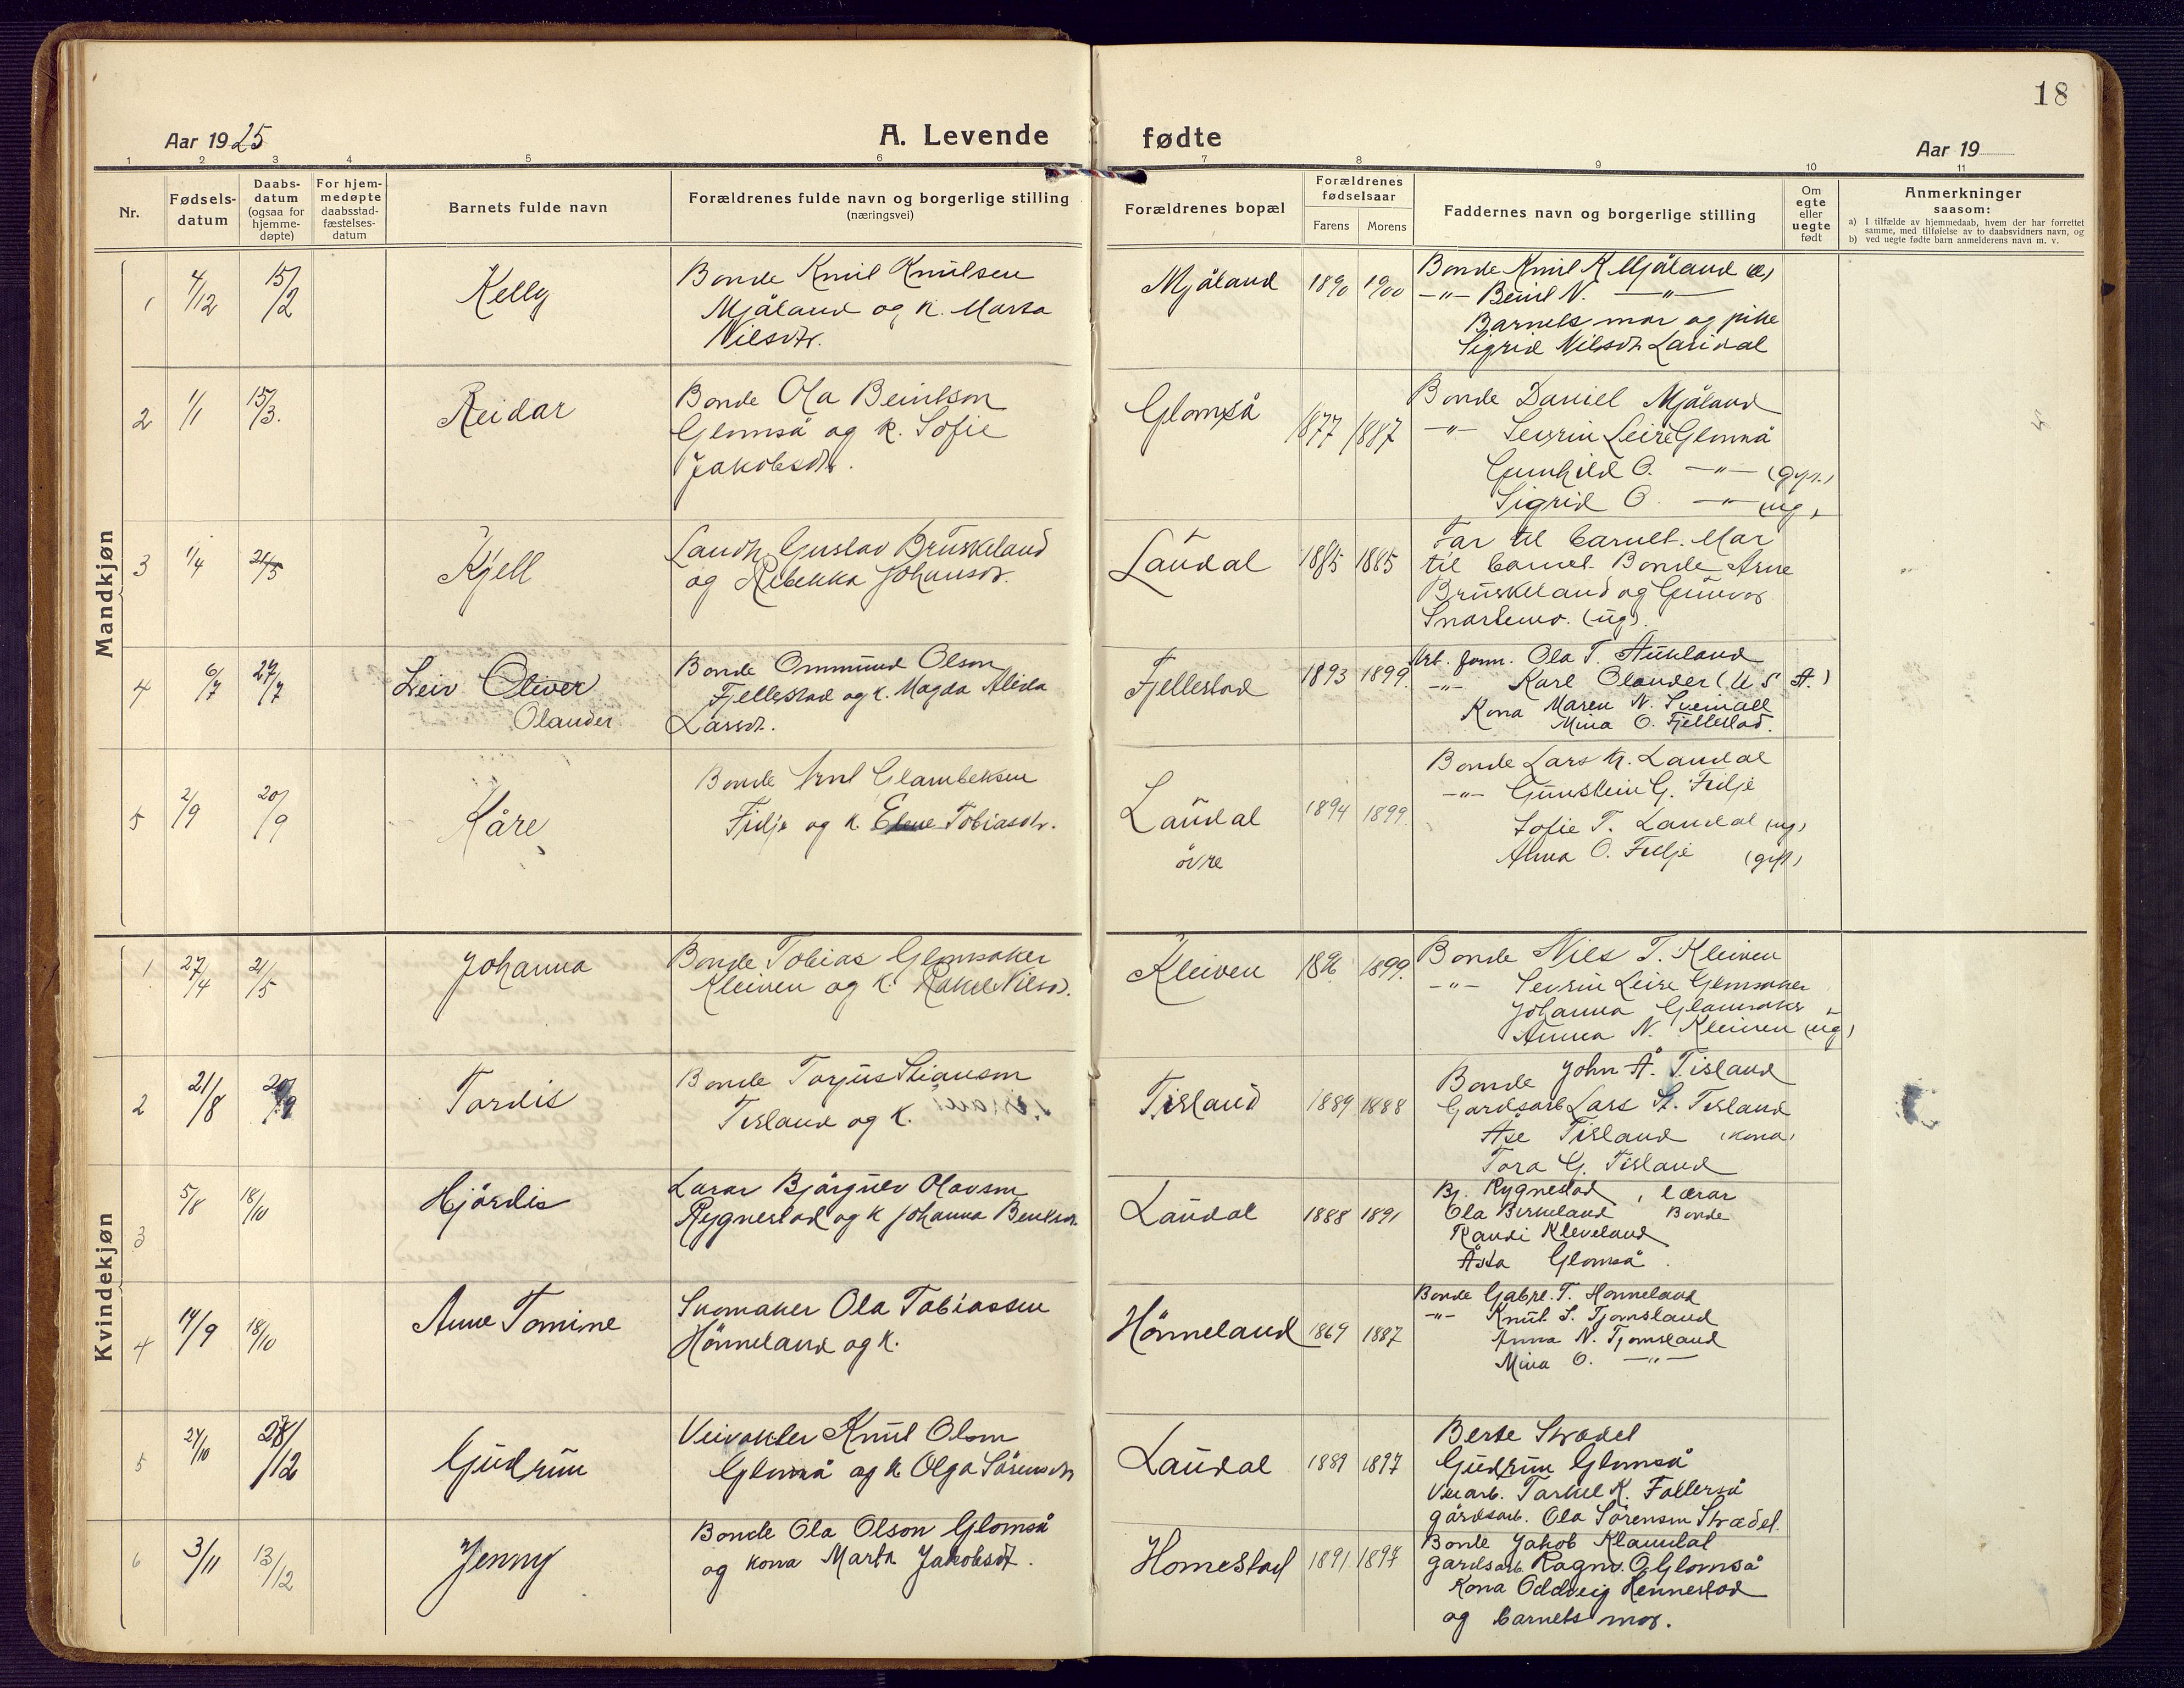 18
Aar 1925
A. Levende fødte
Aar 19
1 2 3 4 5 6 7 8 9 10 11
Nr.
Fødsels-
datum
Daabs-
datum
(ogsaa for
hjemme-
døpte)
For hjem-
medøpte
daabsstad-
fæstelses-
datum
Barnets fulde navn
Forældrenes fulde navn og borgerlige stilling
(næringsvei)
Forældrenes bopæl
Forældrenes
fødselsaar
Farens Morens
Faddernes navn og borgerlige stilling
Om
egte
eller
uegte
født
Anmerkninger
saasom:
a) I tilfælde av hjemmedaab, hvem der har forrettet
samme, med tilføielse av to daabsvidners navn, og
b) ved uegte fødte barn anmelderens navn m. v.
Mandkjøn
1 4/12 15/2 Kelly
Bonde Knut Knutsen
Mjåland og k. Marta
Nilsdtr.
Mjåland 1890 1900
Bonde Knut K. Mjåland
-"- Beint N. -"-
Barnets mor og pike
Sigrid Nilsdtr Laudal
2 1/1 15/3. Reidar
Bonde Ola Beintson
Glomså og k. Sofie
Jakobsdtr.
Glomså 1877 1887
Bonde Daniel Mjåland
-"- Sevrin Leire Glomså
Gunhild O. -"- (gift)
Sigrid O. -"- (ug)
3 1/4 21/5 Kjell
Landh. Gustav Bruskeland
og Rebekka Johansdr.
Laudal 1885 1885
Far til barnet. Mor
til barnet. Bonde Arne
Bruskeland og Gunvor
Snartemo. (ug).
4 6/7 27/7 Leiv Oliver
Olander
Bonde Ommund Olson
Fjellestad og k. Magda Alida
Larsdr.
Fjellestad 1893 1899.
Arb. form. Ola T. Aukland
-"- Karl Olander (U S A.)
Kona Maren N. Sveinall
Mina O. Fjellestad.
5 2/9 20/9 Kåre
Bonde Arnt Glambeksen
Fidje og k. Elene Tobiasdtr.
Laudal
övre
1894 1899.
Bonde Lars K. Laudal
-"- Gunstein G. Fidje
Sofie T. Laudal (ug)
Anna O. Fidje (gift)
Kvindekjøn
1 27/4 21/5 Johanna
Bonde Tobias Glomsaker
Kleiven og k. Rakel Nilsd.
Kleiven 1896 1899.
Bonde Nils T. Kleiven
-"- Sevrin Leire Glomsaker
Johanna Glomsaker
Anna N. Kleiven (ug)
2 21/8 20/9 Tordis
Bonde Torjus Stianson
Tisland og k.
Tisland 1889 1888
Bonde John Å. Tisland
Gardsarb Lars St. Tisland
Åse Tisland (kona)
Tora G. Tisland
3 5/8 18/10 Hjördis
Lærar Bjårgulv Olavson
Rygnestad og k Johanna Bentsdr.
Laudal 1888 1891
Bj. Rygnestad, lærar
Ola Birkeland Bonde
Randi Kleveland
Åsta Glomså.
4 14/9 18/10 Anne Tomine
Skomaker Ola Tobiassen
Hönneland og k.
Hönneland 1869 1887
Bonde Gabre. T. Honneland
-"- Knut S. Tjomsland
Anna N. Tjomsland
Mina O. -"-
5 24/10 /12 Gudrun
Veivokter Knut Olson
Glomså og k. Olga Sörensdtr
Laudal 1889 1897
Berte Strædet
Gudrun Glomså
Veiarb. Tarkel K. Follerså
gårdsarb. Ola Sörensen Strædet.
6 3/11 13/12 Jenny
Bonde Ola Olson Glomså
og kona Marta Jakobsdt.
Homestad 1891 1897
Bonde Jakob Klaundal
gardsarb. Ragnv. O. Glomså
Kona Oddveig Hennestad
og barnets mor.